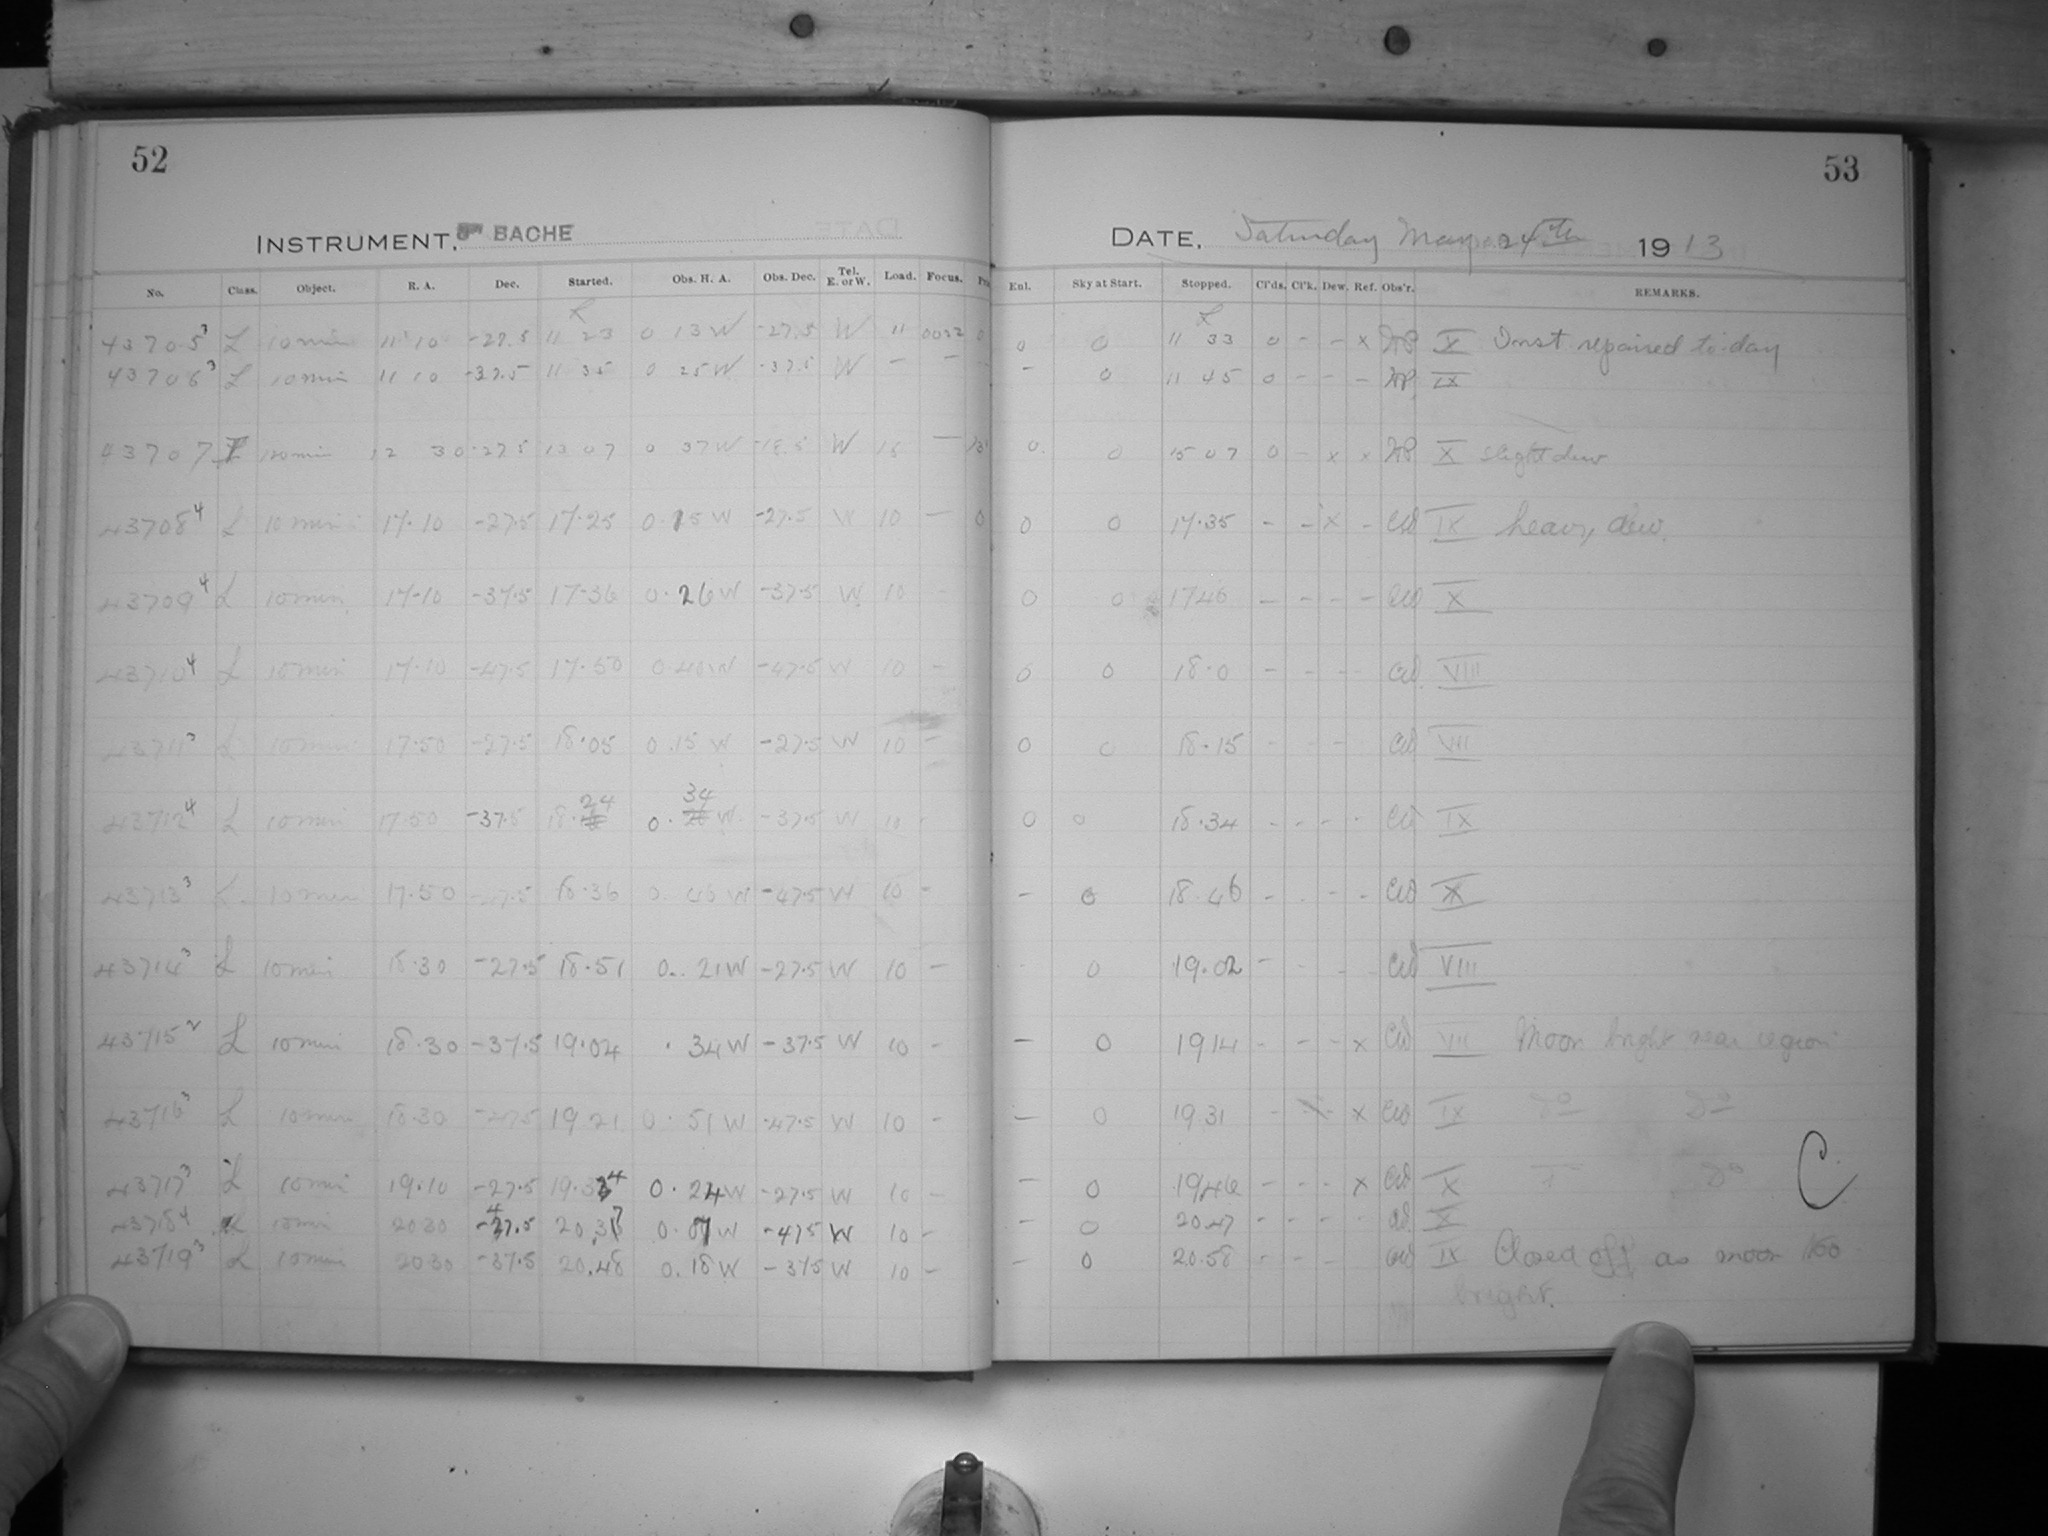 52
53
INSTRUMENT, 8in BACHE
DATE, Saturday May 24th 1913
No. Class. Object. R. A. Dec. Started. Obs. H. A. Obs. Dec. Tel. E. or W. Load. Focus. Enl. Sky at Start. Stopped. Cl'ds. Cl'k. Dew. Ref. Obs'r. REMARKS.
43705 3 L 10 min 11 10 -27.5 11 23 0 13 W -27.5 W 11 0032 0 0 0 11 33 0 - - x X Inst repaired to-day
43706 3 L 10 min 11 10 -37.5 11 35 0 25 W -37.5 W - - - 0 11 45 0 - - - IX
43707 120 min 12 30 -27.5 13 07 0 37 W W - 0 0 15 07 0 - x x X slight dew
43708 4 L 10 min 17.10 -27.5 17.25 0.15 W -27.5 W 10 - 0 0 0 17.35 - - x - IX heavy dew.
43709 4 L 10 min 17-10 -37.5 17-36 0.26 W -37.5 W 10 - 0 0 1746 - - - - X
43710 4 L 10 min 17.10 -47.5 17.50 0.40 W -47.5 W 10 - 0 0 18.0 - - - - VIII
43711 3 L 10 min 17.50 -27.5 18.05 0.15 W -27.5 W 10 - 0 0 18.15 - - - - VIII
43712 4 L 10 min 17.50 -37.5 18.24 0.34 W -37.5 W 10 - 0 0 18.34 - - - - IX
43713 3 L 10 min 17.50 -47.5 18.36 0.46 W -47.5 W 10 - - 0 18.46 - - - - X
43714 3 L 10 min 18.30 -27.5 18.51 0.21 W -27.5 W 10 - - 0 19.02 - - - - VIII
43715 2 L 10 min 18.30 -37.5 19.04 .34 W -37.5 W 10 - - 0 1914 - - - x VII Moon bright near region
43716 3 L 10 min 18.30 -47.5 19 21 0.51 W -47.5 W 10 - - 0 19.31 - - x IX Do Do
43717 3 L 10 min 19.10 -27.5 19.34 0.24 W -27.5 W 10 - - 0 1946 - - - x X Do C
43718 4 L 10 min 20 30 -47.5 20.37 0.07 W -47.5 W 10 - - 0 20.47 - - - - X
43719 3 L 10 min 20 30 -37.5 20.48 0.18 W -37.5 W 10 - - 0 20.58 - - - IX Closed off as moon too
bright.